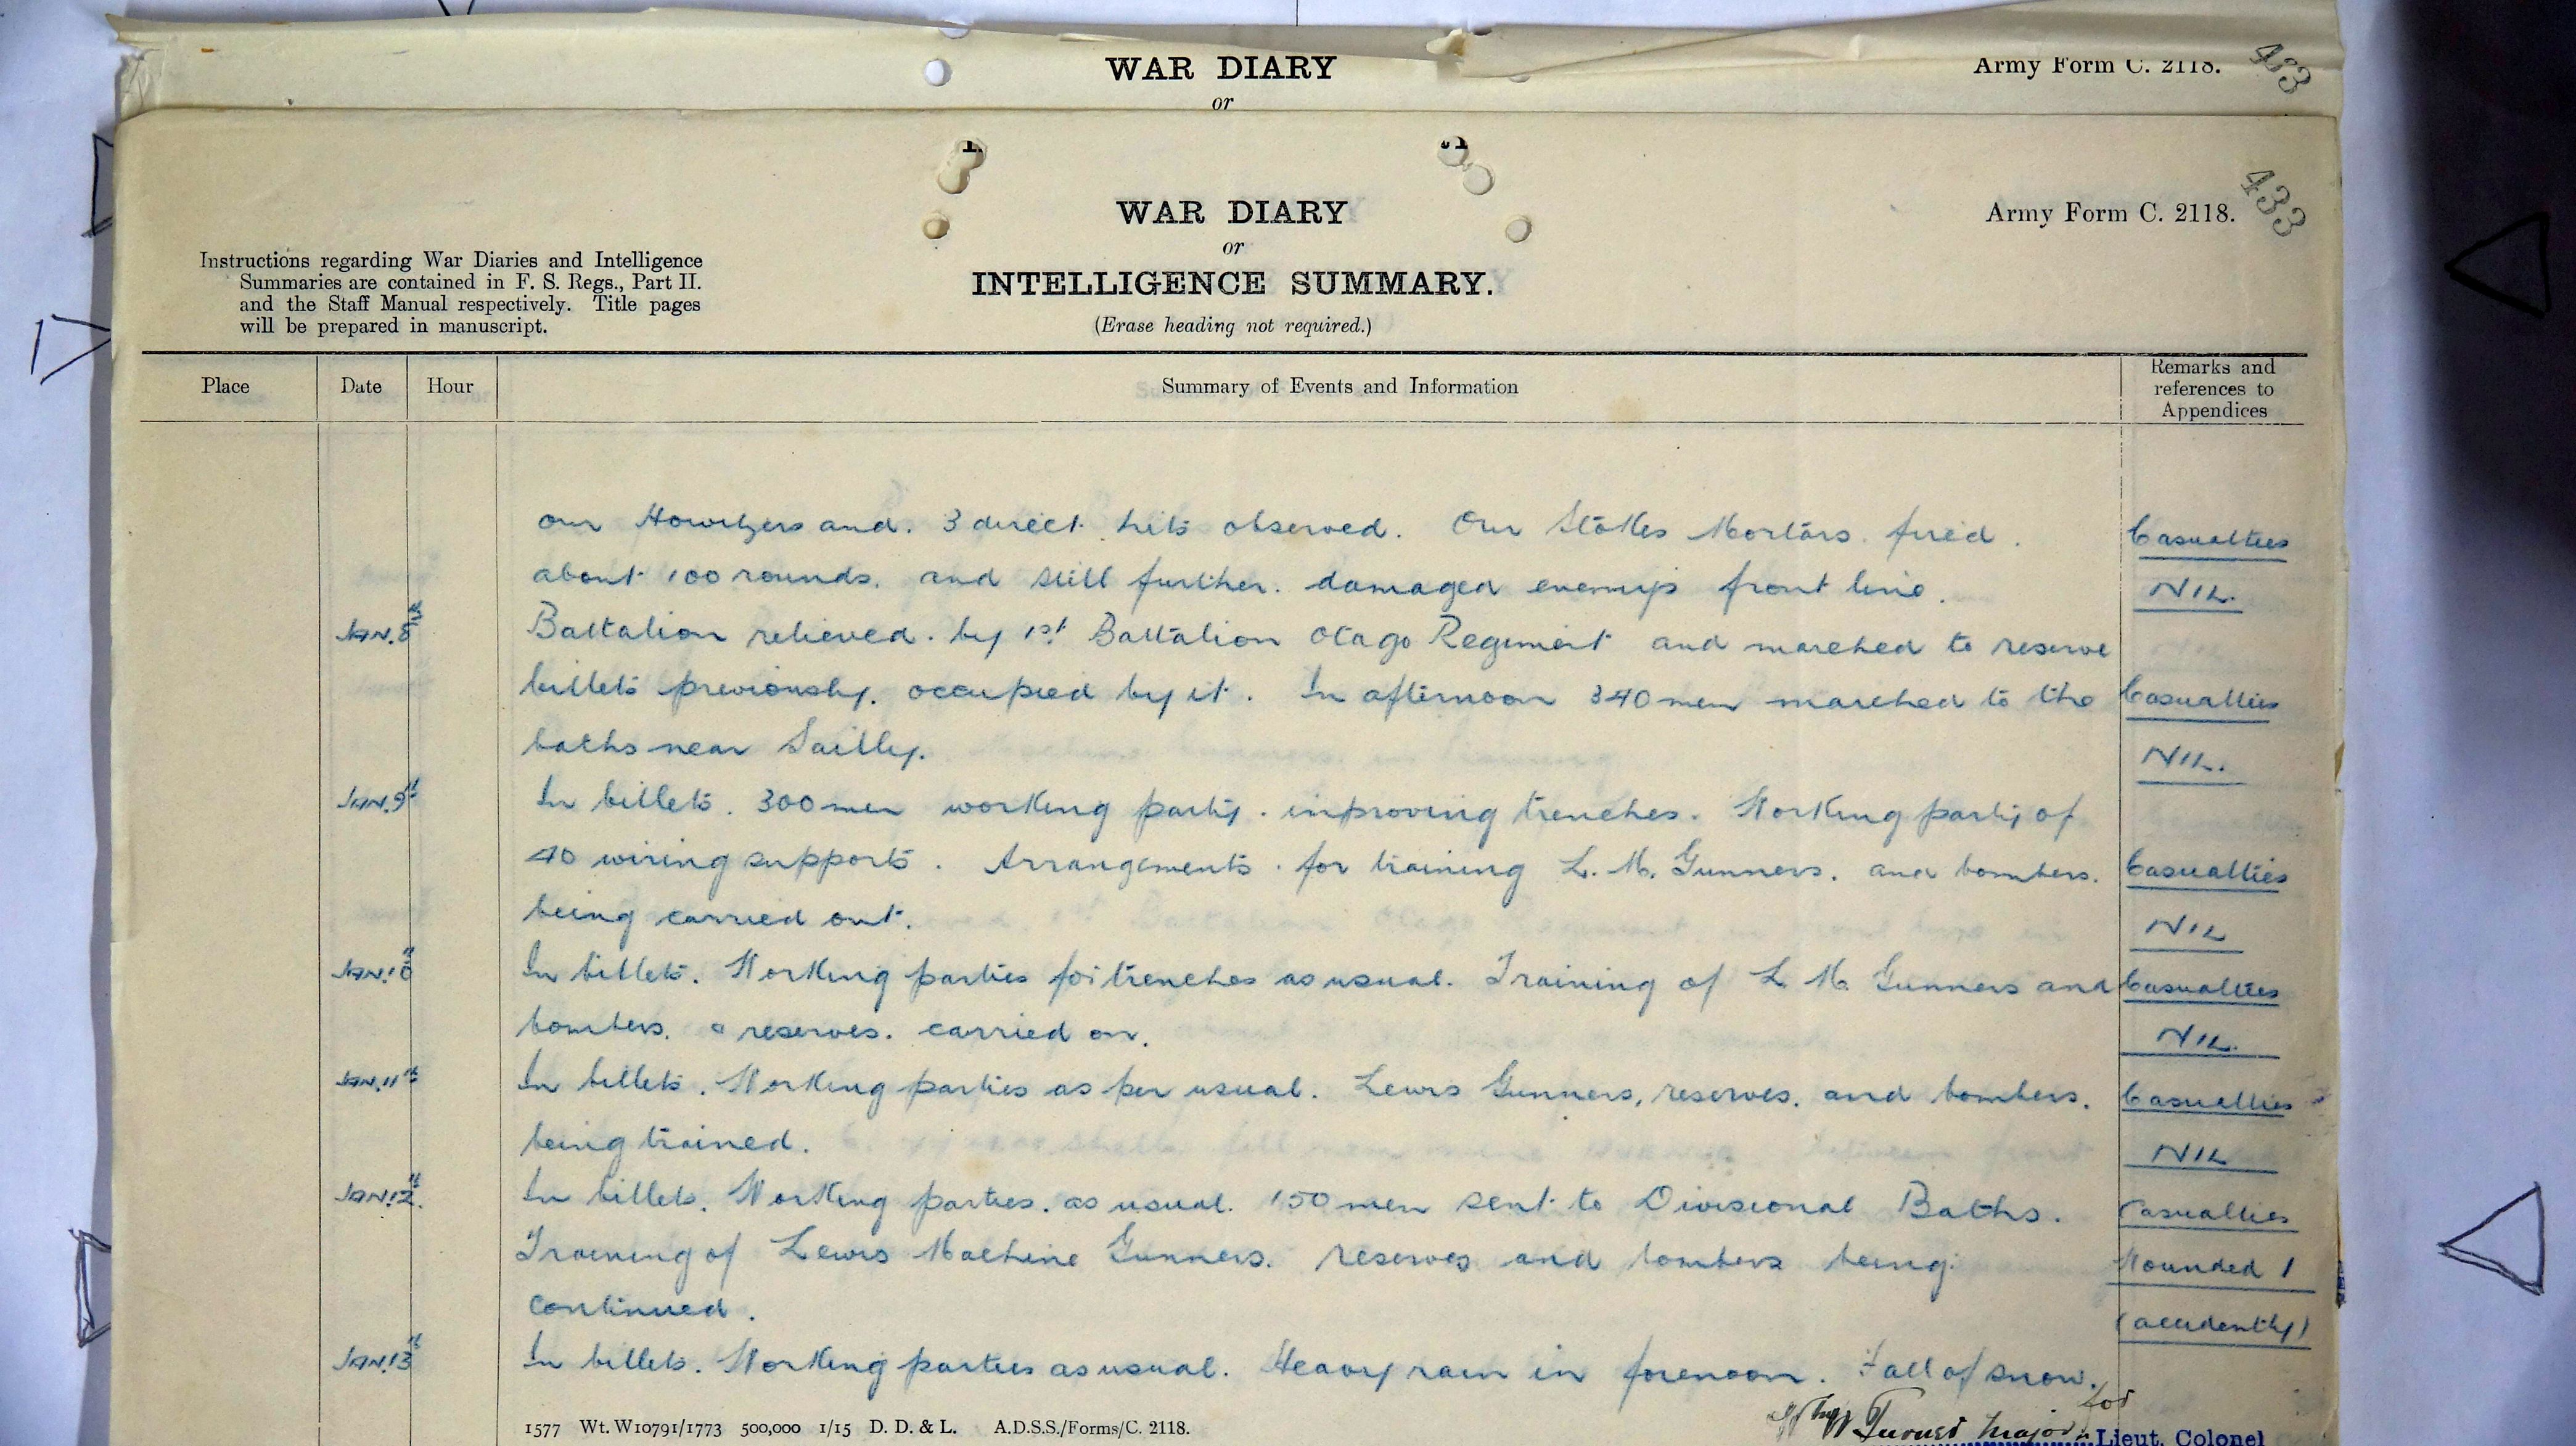 WAR DIARY
or
Army Form C. 2118.
433
WAR DIARY
or
INTELLIGENCE SUMMARY.
(Erase heading not required.)
Army Form C. 2118.
433
Instructions regarding War Diaries and Intelligence
Summaries are contained in F. S. Regs., Part II.
and the Staff Manual respectively. Title pages
will be prepared in manuscript.
Place Date Hour Summary of Events and Information Remarks and references to Appendices
our Howitzers and. 3 direct hits observed. Our Stokes Mortars fired. Casualties
about 100 rounds. and still further. damaged enemys front line. NIL.
JAN. 8th Battalion relieved. by 1st Battalion Otago Regiment and marched to reserve
billets previously. occupied by it. In afternoon 340 men marched to the Casualties
baths near Sailly. NIL.
JAN. 9th In billets. 300 men working party. improving trenches. Working party of
40 wiring supports. Arrangements for training L. M. Gunners. and bombers. Casualties
being carried out. NIL
JAN. 10th In billets. Working parties for trenches as usual. Training of L M. Gunners and Casualties
bombers. reserves. carried on. NIL.
JAN. 11th In billets. Working parties as per usual. Lewis Gunners, reserves. and bombers. Casualties
being trained. NIL
JAN. 12th. In billets. Working parties. as usual. 150 men sent to Divisional Baths. Casualties
Training of Lewis Machine Gunners. reserves and bombers being. Wounded 1
continued. (accidently)
JAN. 13th In billets. Working parties as usual. Heavy rain in forenoon. Fall of snow.
for
Turner Major
Lieut. Colonel
1577 Wt. W10791/1773 500,000 1/15 D. D. & L. A.D.S.S./Forms/C. 2118.